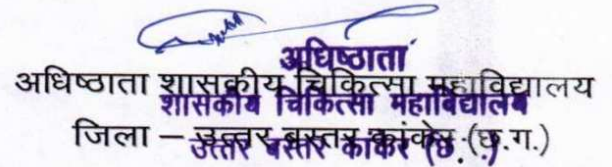 अधिष्ठाता
अधिष्ठाता शासकीय चिकित्सा महाविद्यालय
शासकीय चिकित्सा महाविद्यालय
जिला – उत्तर बस्तर कांकेर (छ.ग.)
उत्तर बस्तर कांकेर (छ. ग.)